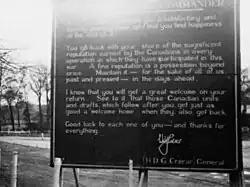 COMMANDER
a satisfactory and
find you find happiness
You go back with your share of the magnificent
reputation earned by the Canadians in every
operation in which they have participated in this
war. A fine reputation is a possession beyond
price. Maintain it — for the sake of all of us
past and present — in the days ahead.
I know that you will get a great welcome on your
return. See to it that those Canadian units
and drafts, which follow after you, get just as
good a welcome home when they, also got back.
Good luck to each one of you — and thanks for
everything.
(H D G Crerar) General